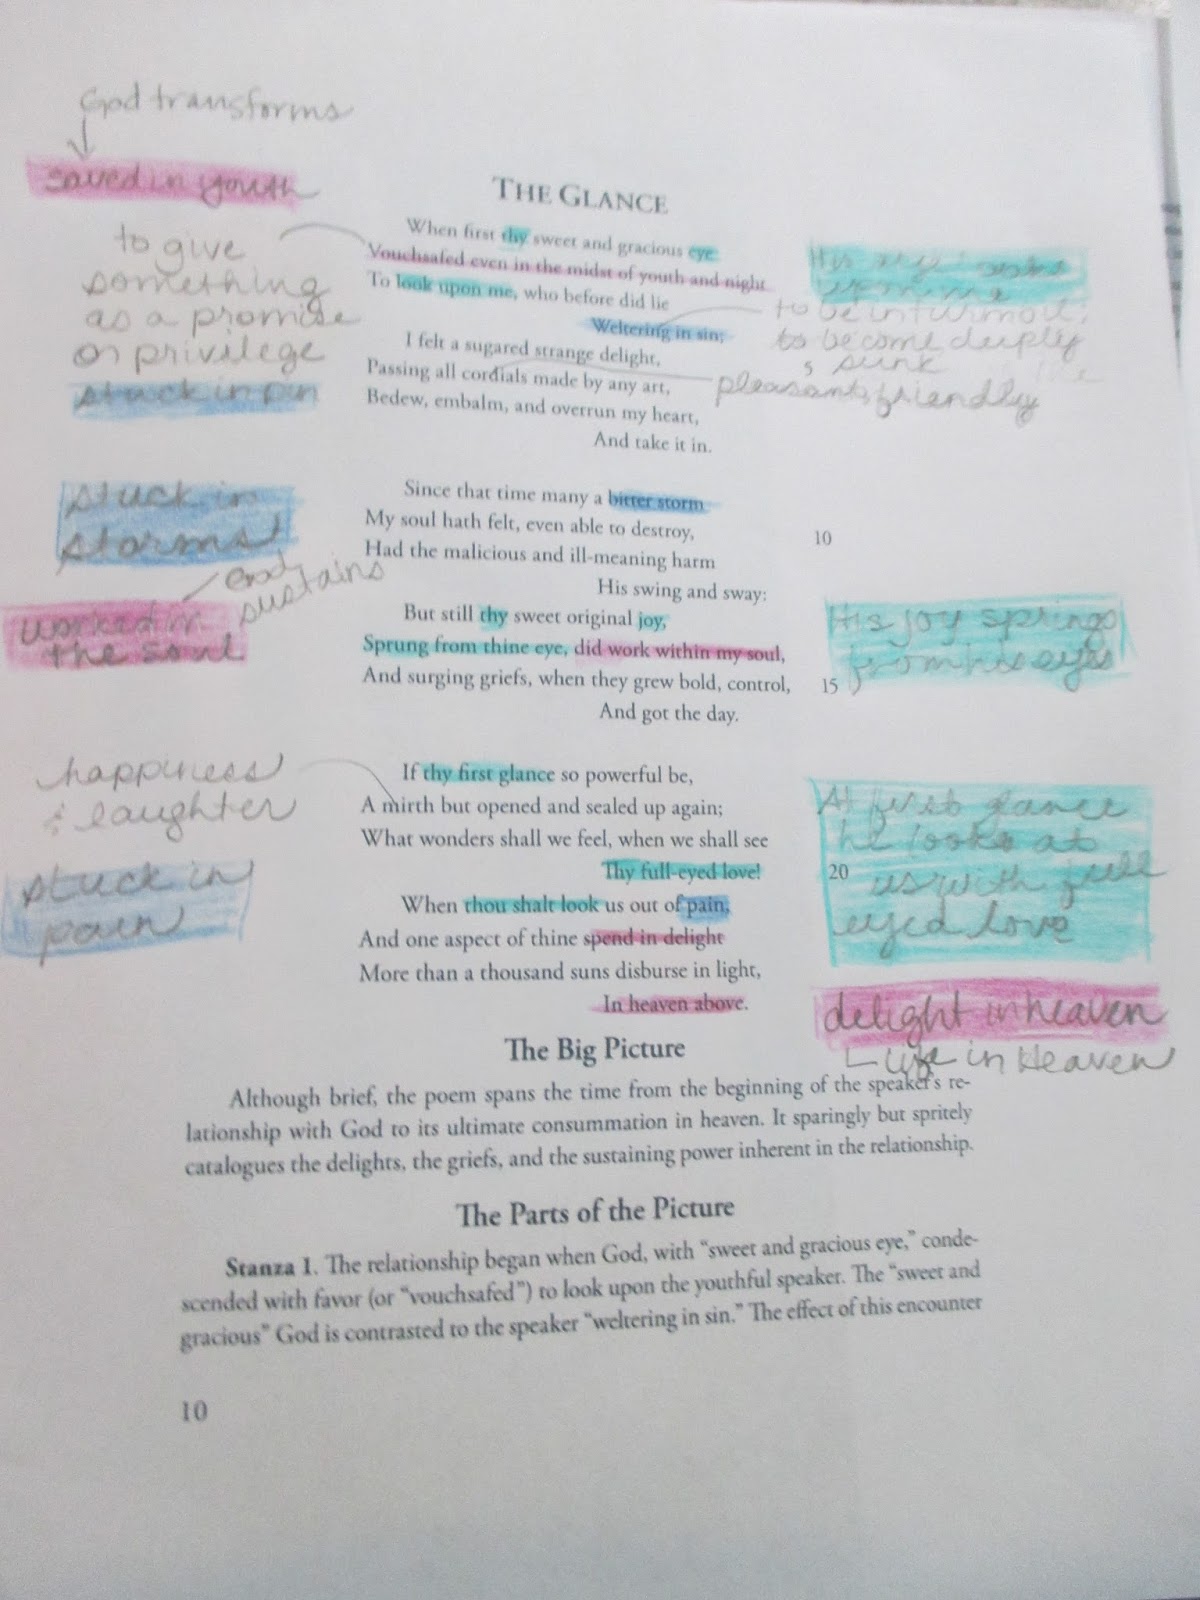 God transforms
saved in youth
to give
something
as a promise
or privilege
stuck in sin
stuck in
storms
God
sustains
worked in
the soul
happiness
& laughter
stuck in
pain
THE GLANCE
When first thy sweet and gracious eye
Vouchsafed even in the midst of youth and night
To look upon me, who before did lie
Weltering in sin;
I felt a sugared strange delight,
5
Passing all cordials made by any art,
Bedew, embalm, and overrun my heart,
And take it in.
Since that time many a bitter storm
My soul hath felt, even able to destroy,
10
Had the malicious and ill-meaning harm
His swing and sway:
But still thy sweet original joy,
Sprung from thine eye, did work within my soul,
And surging griefs, when they grew bold, control,
15
And got the day.
If thy first glance so powerful be,
A mirth but opened and sealed up again;
What wonders shall we feel, when we shall see
Thy full-eyed love!
20
When thou shalt look us out of pain,
And one aspect of thine spend in delight
More than a thousand suns disburse in light,
In heaven above.
His eye
upon me
to be in turmoil;
to become deeply
sunk
pleasant, friendly
His joy springs
from his eyes
At first glance
he looks at
us with full
eyed love
delight in heaven
Life in Heaven
The Big Picture
Although brief, the poem spans the time from the beginning of the speaker's re-
lationship with God to its ultimate consummation in heaven. It sparingly but spritely
catalogues the delights, the griefs, and the sustaining power inherent in the relationship.
The Parts of the Picture
Stanza 1. The relationship began when God, with “sweet and gracious eye,” conde-
scended with favor (or “vouchsafed”) to look upon the youthful speaker. The “sweet and
gracious” God is contrasted to the speaker “weltering in sin.” The effect of this encounter
10